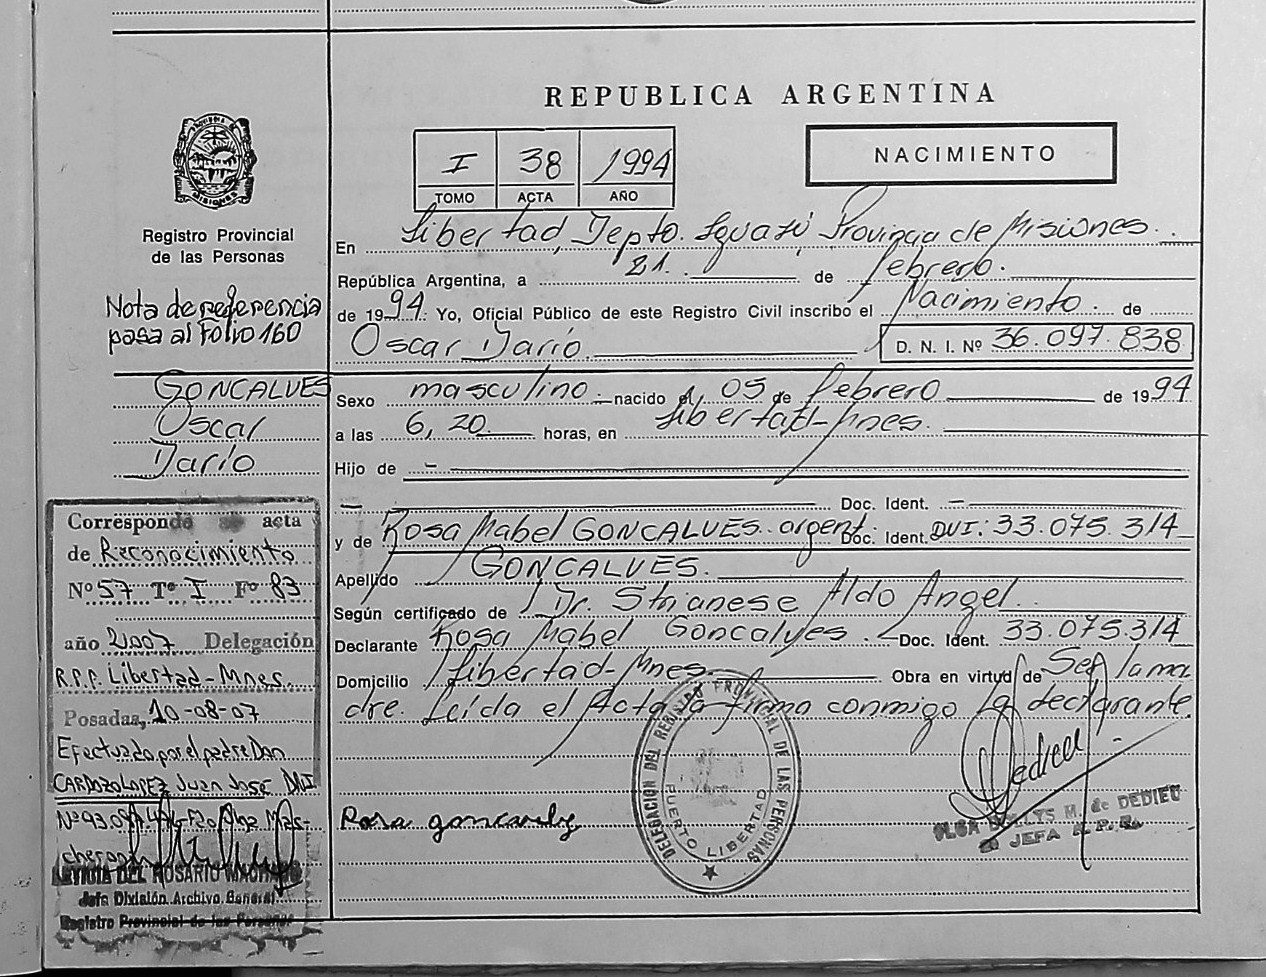 REPUBLICA ARGENTINA
I 38 1994
TOMO ACTA AÑO
NACIMIENTO
Registro Provincial
de las Personas
Nota de referencia
pasa al Folio 160
En Libertad, Depto. Iguazú, Provincia de Misiones.
República Argentina, a 21. de febrero.
de 1994. Yo, Oficial Público de este Registro Civil inscribo el Nacimiento. de
Oscar Darío D. N. I. Nº 36.097.838
GONCALVES
Oscar
Darío
Sexo masculino. nacido el 05 de febrero de 1994
a las 6,20 horas, en Libertad-Mnes.
Hijo de –
— Doc. Ident. —
y de Rosa Mabel GONCALVES. argent. Doc. Ident. DUI: 33.075.314
Apellido GONCALVES.
Según certificado de Dr. Strianese Aldo Angel.
Declarante Rosa Mabel Goncalves. Doc. Ident. 33.075.314
Domicilio Libertad-Mnes. Obra en virtud de Ser la ma
dre. Leída el Acta la firma conmigo la declarante.
Corresponde al acta
de Reconocimiento
Nº 57 Tº I Fº 83
año 2.007 Delegación
R.P.P. Libertad-Mnes.
Posadas, 10-08-07
Efectuado por el padre Don
CARDOZO LOPEZ Juan José DNI
Jefa División Archivo General
Registro Provincial de las Personas
Rosa goncalves
DELEGACION DEL REGISTRO PROVINCIAL DE LAS PERSONAS
PUERTO LIBERTAD
Dedieu
OLGA M. de DEDIEU
JEFA R. P. P.